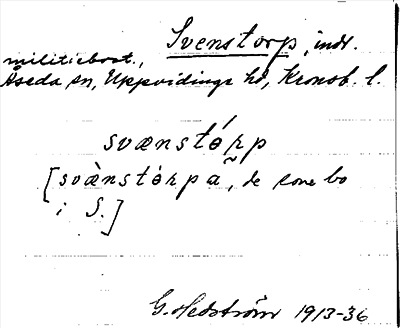 Svenstorp, indr.
militiebost.,
Åseda sn, Uppvidinge hd, Kronob. l.
svænstórp
[svænstórpa, de som bo
i S.]
G. Hedström 1913-36